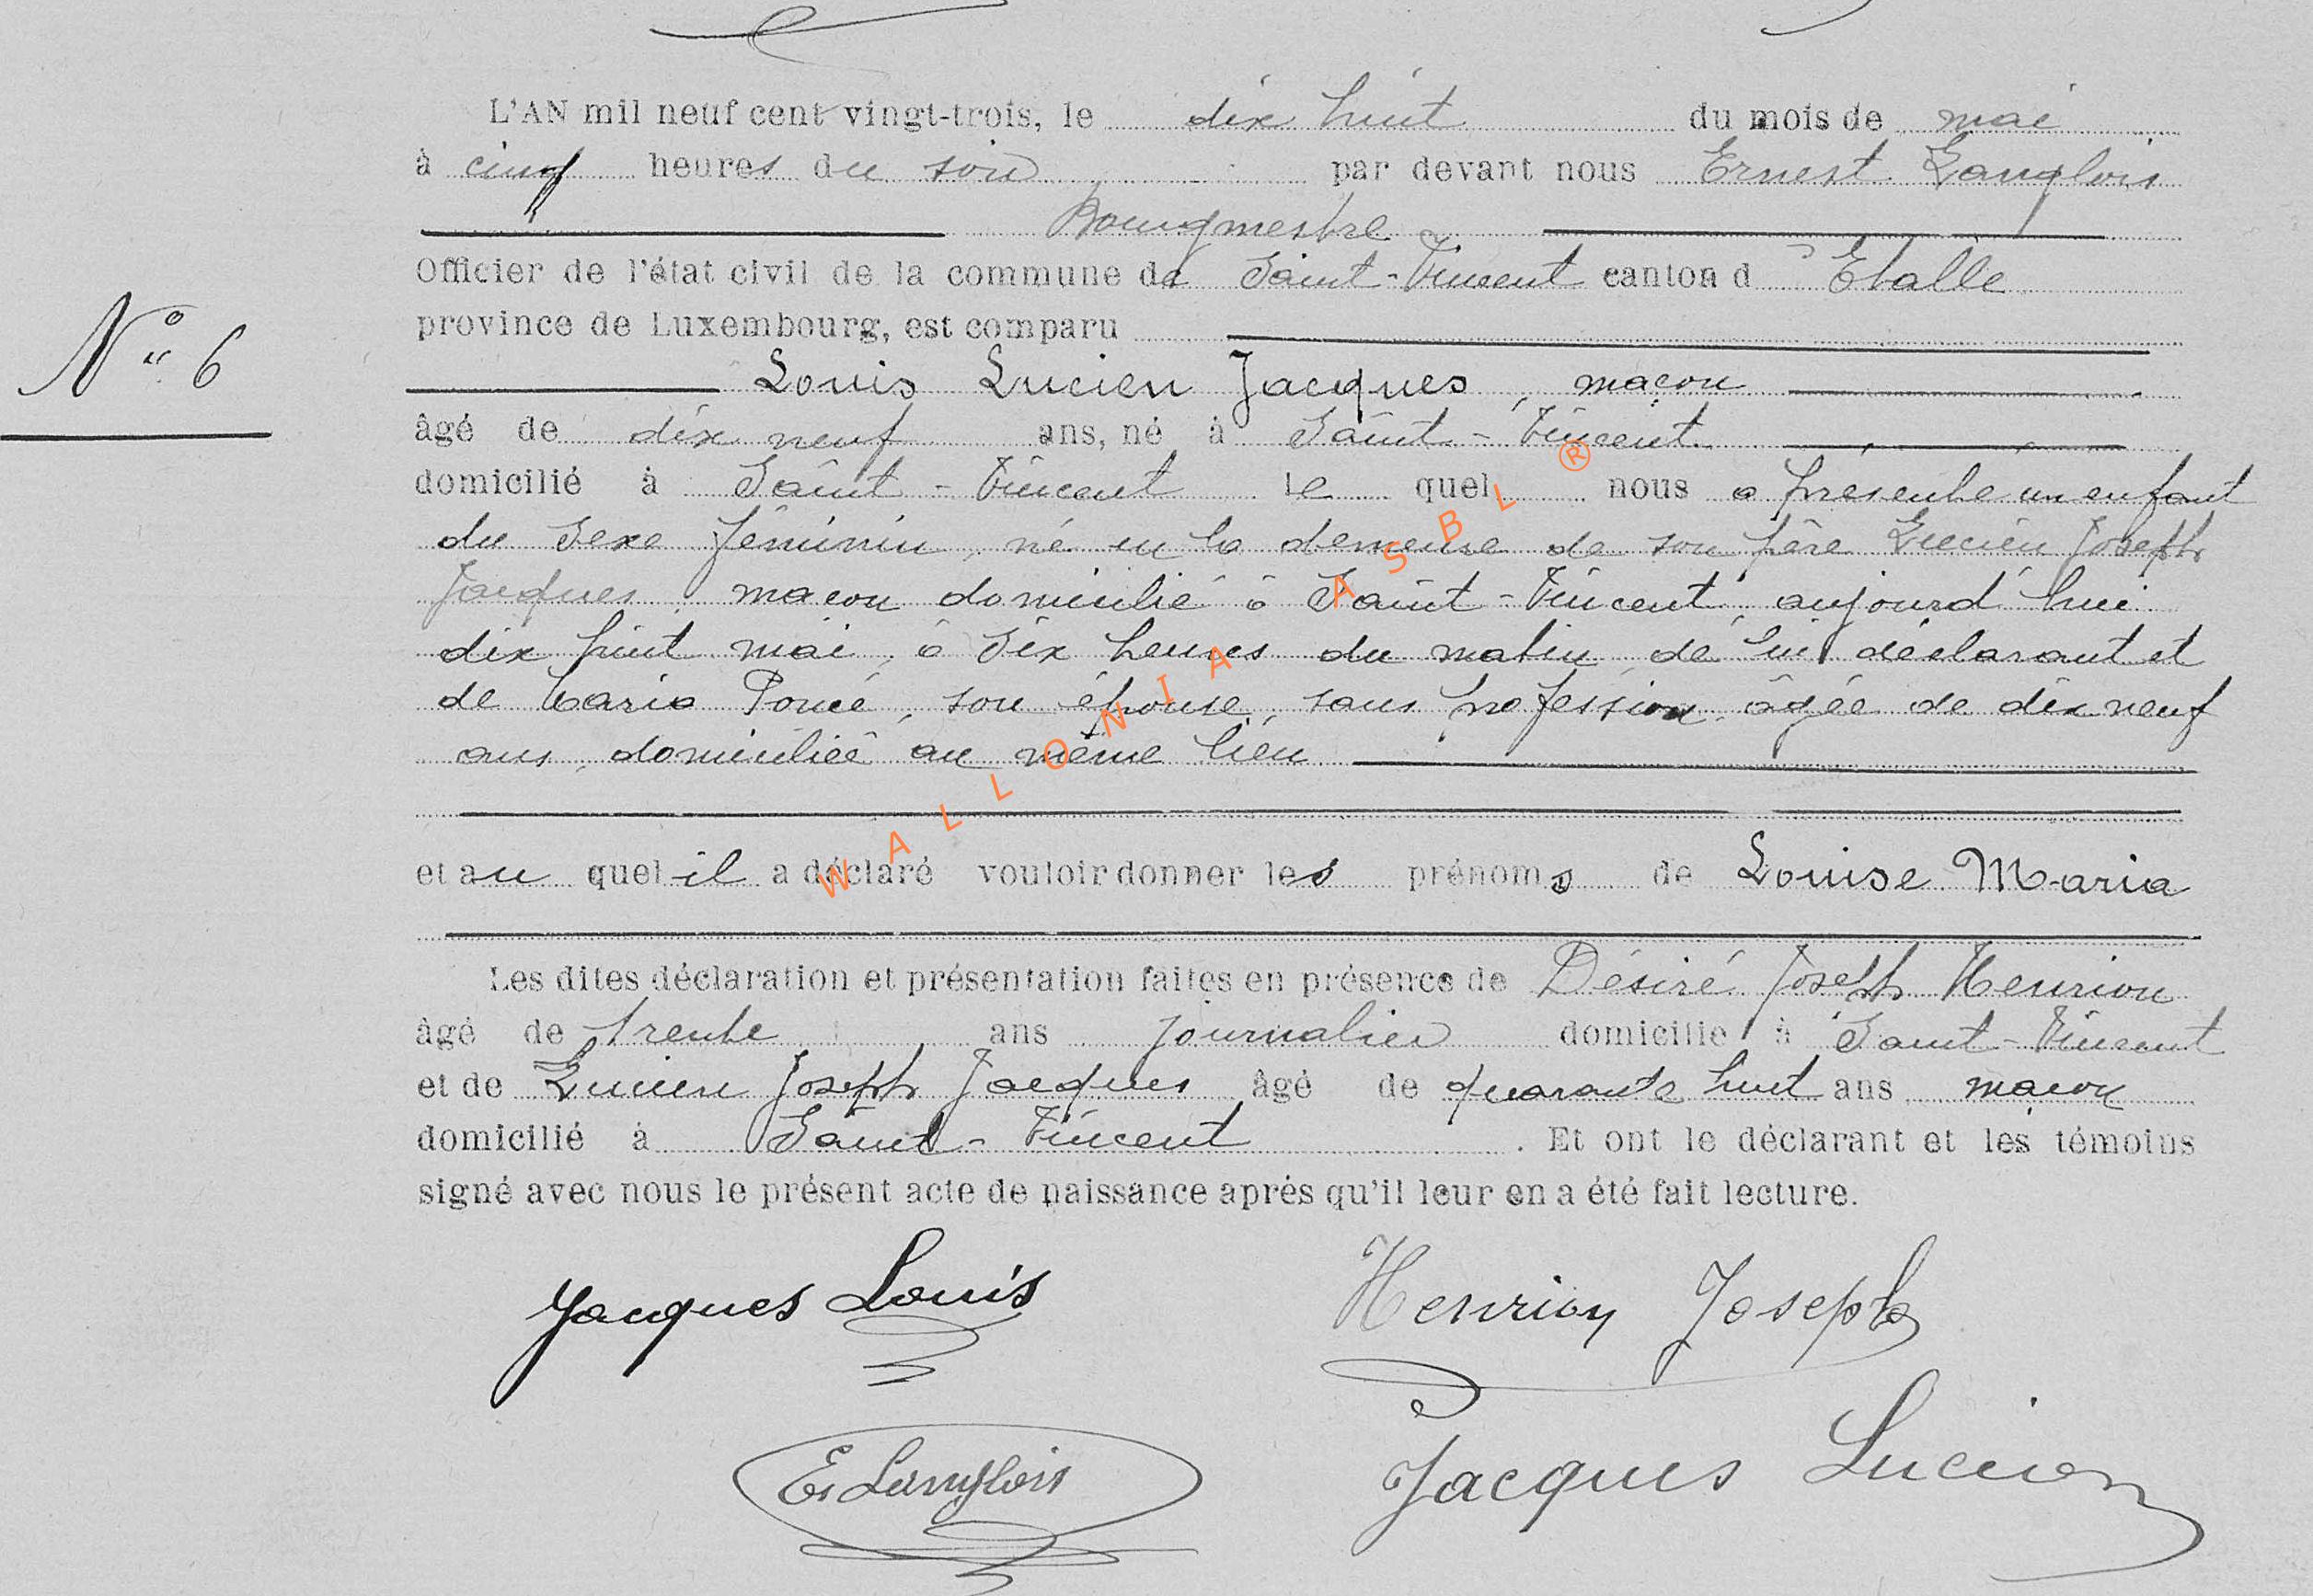 L'AN mil neuf cent vingt-trois, le dix huit du mois de mai
à cinq heures du soir par devant nous Ernest Langlois
Bourgmestre
Officier de l'état civil de la commune de Saint-Vincent canton d'Etalle
province de Luxembourg, est comparu
N° 6
Louis Lucien Jacques, maçon
âgé de dix neuf ans, né à Saint-Vincent
domicilié à Saint-Vincent lequel nous a présenté un enfant
du sexe féminin, né en la demeure de son père Lucien Joseph
Jacques, maçon domicilié à Saint-Vincent, aujourd'hui
dix huit mai, à six heures du matin, de lui déclarant et
de Maria Poncé, son épouse, sans profession, âgée de dix neuf
ans, domiciliée au même lieu
et auquel il a déclaré vouloir donner les prénoms de Louise Maria
Les dites déclaration et présentation faites en présence de Désiré Joseph Henrion
âgé de trente ans journalier domicilié à Saint-Vincent
et de Lucien Joseph Jacques âgé de quarante huit ans maçon
domicilié à Saint-Vincent. Et ont le déclarant et les témoins
signé avec nous le présent acte de naissance après qu'il leur en a été fait lecture.
Jacques Louis Henrion Joseph
E. Langlois Jacques Lucien
WALLONIA ASBL ®